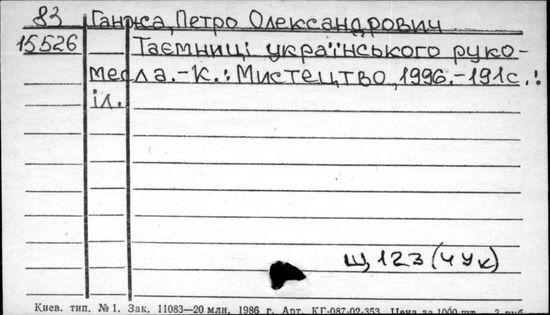 83 Ганжа, Петро Олександрович
15526 Таємниці українського руко-
месла.-К.: Мистецтво, 1996.-191с.:
іл.
Щ123(4Ук)
Киев. тип. № 1. Зак. 11083—20 млн. 1986 г. Арт. КГ-087-02-353. Цена за 1000 шт.